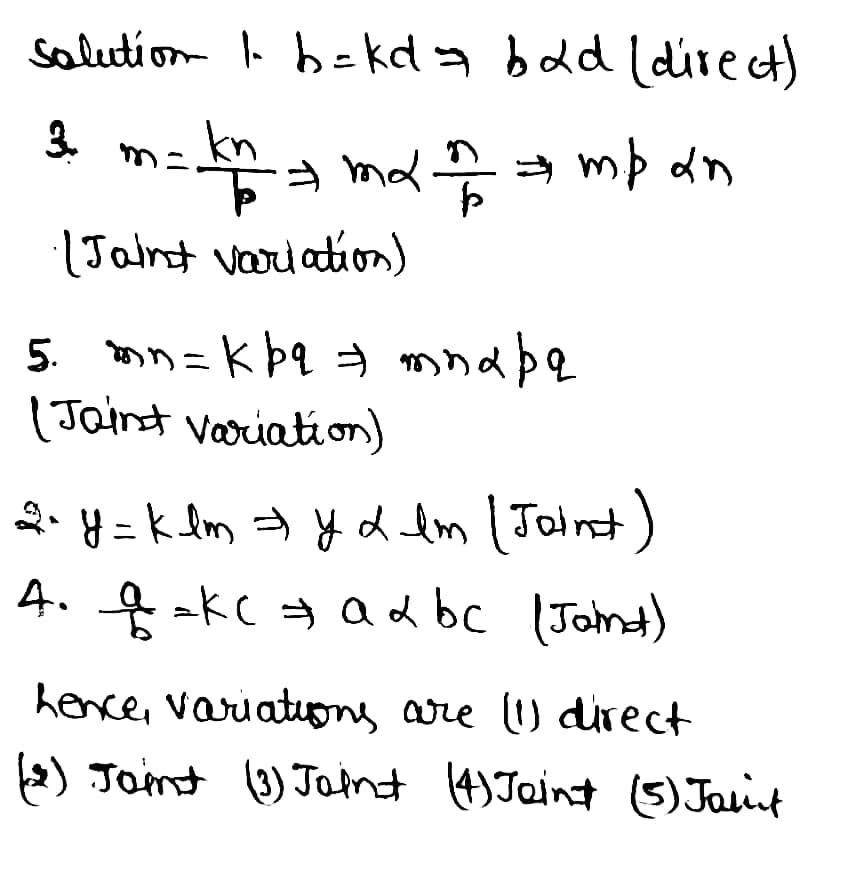 Solution 1. b = kd ⇒ b ∝ d (direct)
3. m = kn/p ⇒ m ∝ n/p ⇒ mp ∝ n
(Joint variation)
5. mn = k pq ⇒ mn ∝ pq
(Joint variation)
2. y = k lm ⇒ y ∝ lm (Joint)
4. a/b = kc ⇒ a ∝ bc (Joint)
hence, variations are (1) direct
(2) Joint (3) Joint (4) Joint (5) Joint